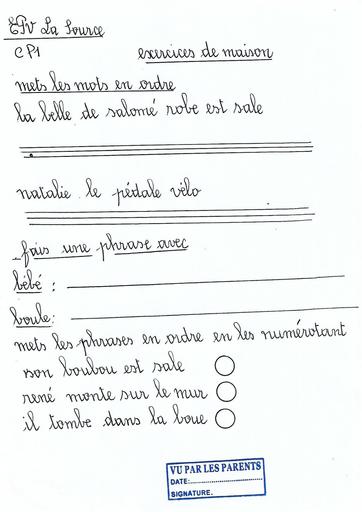 EPV La Source
CP1 exercices de maison
mets les mots en ordre
la belle de salomé robe est sale
natalie le pédale vélo
fais une phrase avec
bébé :
boule :
mets les phrases en ordre en les numérotant
son boubou est sale
rené monte sur le mur
il tombe dans la boue
VU PAR LES PARENTS
DATE:
SIGNATURE.